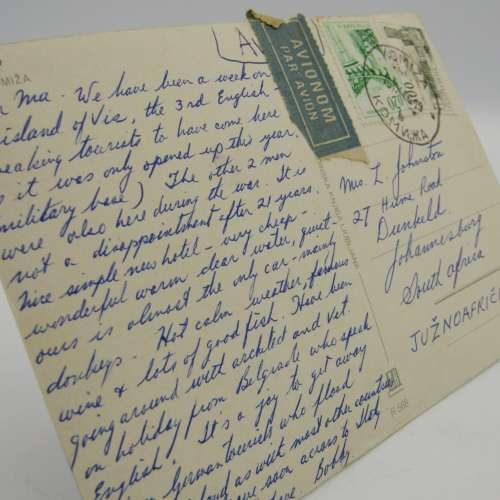 MIŽA
Ma. We have been a week on
island of Vis, the 3rd English-
eaking tourists to have come here
s it was only opened up this year.
military base) The other 2 men
were also here during the war. It is
not a disappointment after 21 years.
Nice simple new hotel - very cheap -
wonderful warm clear water, quiet -
ours is almost the only car - mainly
donkeys. Hot calm weather, famous
wine & lots of good fish. Have been
going around with architect and Vet.
on holiday from Belgrade who speak
English! It's a joy to get away
German tourists who flood
as with most other countries
soon across to Italy
Bobby.
AVIONOM
PAR AVION
Mrs. L. Johnston
27 Hume Road
Dunkeld
Johannesburg
South Africa
JUŽNOAFRIČ
R 566